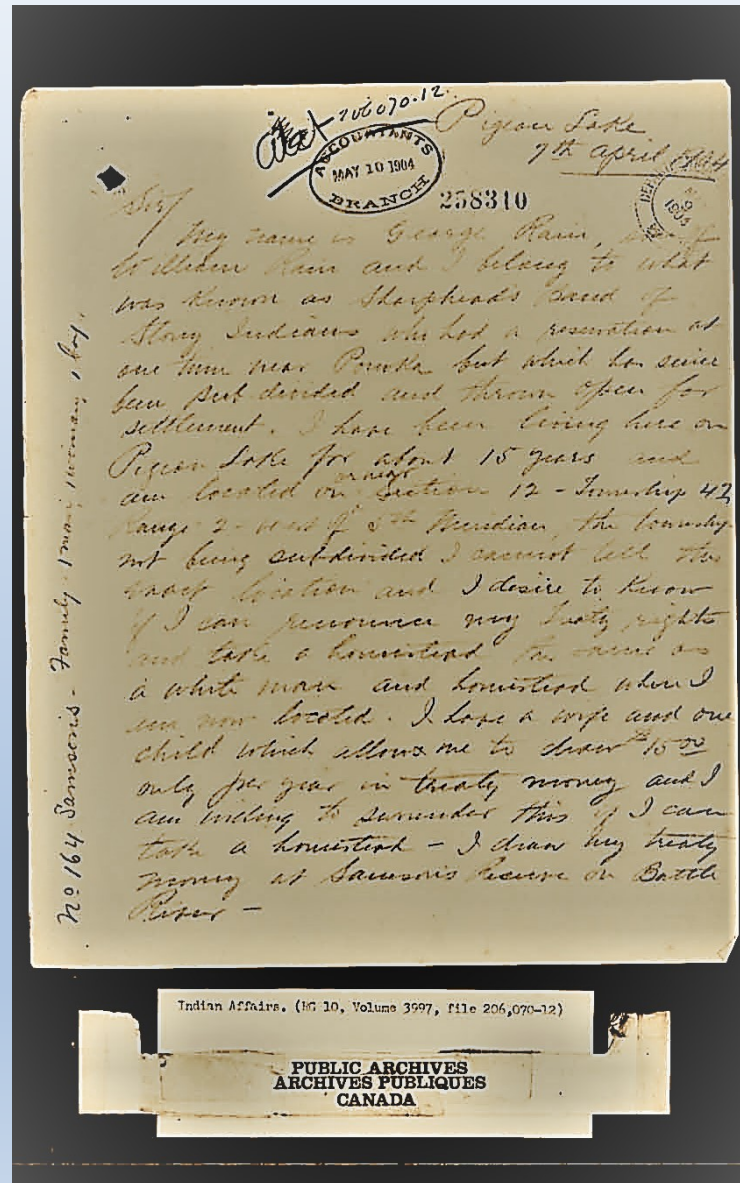 Acct 206070-12.
ACCOUNTANTS
MAY 10 1904
BRANCH
258310
Pigeon Lake
7th april 1904
Sir/
My name is George Rain, son of
William Rain and I belong to what
was known as Sharphead's Band of
Stony Indians who had a reservation at
one time near Ponoka but which has since
been sub-divided and thrown open for
settlement. I have been living here on
Pigeon Lake for about 15 years and
am located on or near Section 12 - Township 47
Range 2 - west of 5th Meridian, the township
not being subdivided I cannot tell the
exact location and I desire to know
if I can renounce my Treaty rights
and take a homestead the same as
a white man and homestead where I
am now located. I have a wife and one
child which allows me to draw $15.00
only per year in treaty money and I
am willing to surrender this if I can
take a homestead - I draw my treaty
money at Samson's Reserve on Battle
River -
No 164 Samson's - Family - 1 man, 1 woman, 1 boy.
Indian Affairs. (RG 10, Volume 3997, file 206,070-12)
PUBLIC ARCHIVES
ARCHIVES PUBLIQUES
CANADA